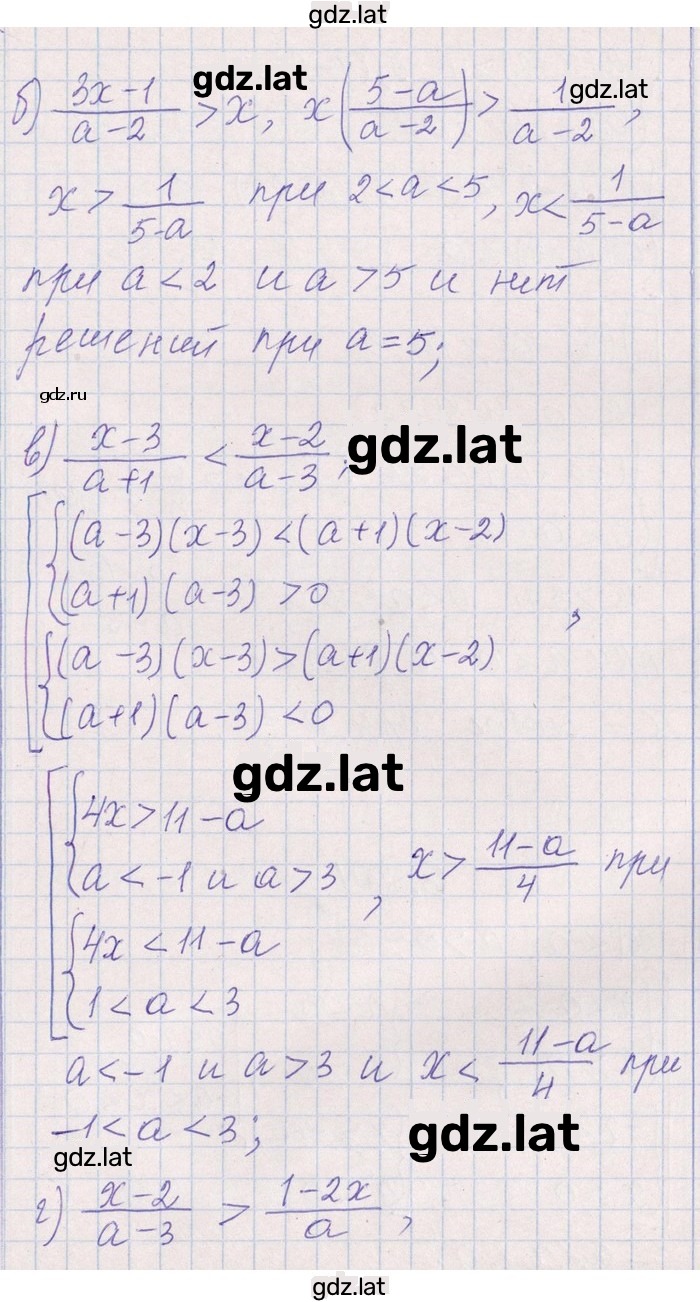 gdz.lat
gdz.lat
б) (3x-1)/(a-2) > x, x((5-a)/(a-2)) > 1/(a-2),
gdz.lat
x > 1/(5-a) при 2<a<5, x< 1/(5-a)
при a<2 и a>5 и нет
решений при a=5;
gdz.ru
в) (x-3)/(a+1) < (x-2)/(a-3);
gdz.lat
[ { (a-3)(x-3)<(a+1)(x-2)
(a+1)(a-3)>0
{ (a-3)(x-3)>(a+1)(x-2) ,
(a+1)(a-3)<0
gdz.lat
[ { 4x>11-a
a<-1 и a>3 , x> (11-a)/4 при
{ 4x<11-a
1<a<3
a<-1 и a>3 и x< (11-a)/4 при
-1<a<3;
gdz.lat
gdz.lat
г) (x-2)/(a-3) > (1-2x)/a,
gdz.lat